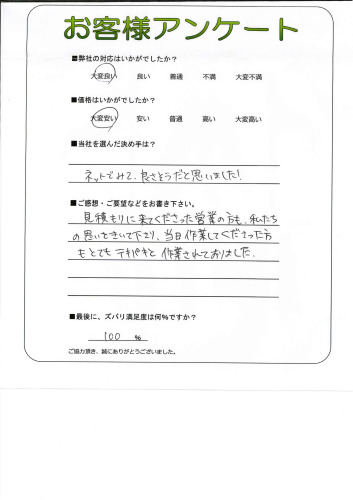 お客様アンケート
■弊社の対応はいかがでしたか？
大変良い 良い 普通 不満 大変不満
■価格はいかがでしたか？
大変安い 安い 普通 高い 大変高い
■当社を選んだ決め手は？
ネットでみて、良さそうだと思いました!
■ご感想・ご要望などをお書き下さい。
見積もりに来てくださった営業の方も、私たち
の思いをきいて下さり、当日作業してくださった方
もとてもテキパキと作業されておりました.
■最後に、ズバリ満足度は何%ですか？
100 %
ご協力頂き、誠にありがとうございました。